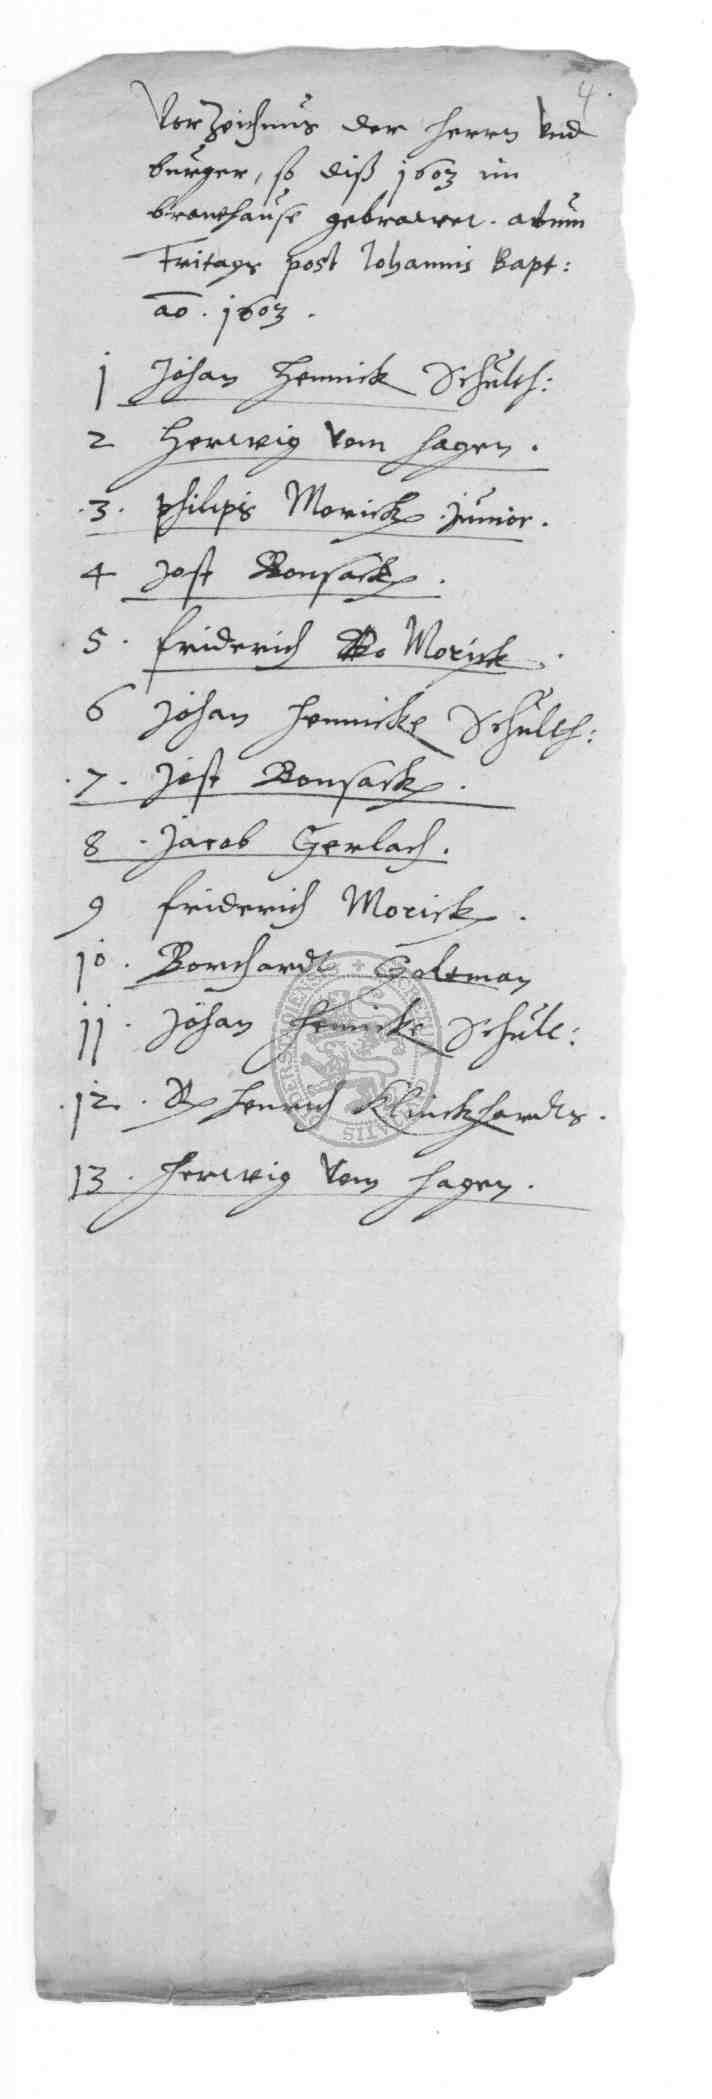 4.
Vorzeichnus der herrn vnd
burger, so diß 1603 im
brawhause gebrawet. actum
Fritags post Johannis Bapt:
ao. 1603.
1 Johan Hennick Schulth:
2 Herwig vom hagen.
.3. philips Morick junior.
4 Jost Bonsack.
5. friderich Bo Morick.
6 Johan hennicke Schulth:
.7. Jost Bonsack.
8. Jacob Gerlach.
9 friderich Morick.
10. Borchardt Goltman
11. Johan hennicke Schult:
.12. henrich Klinckhardts.
13. herwig vom hagen.